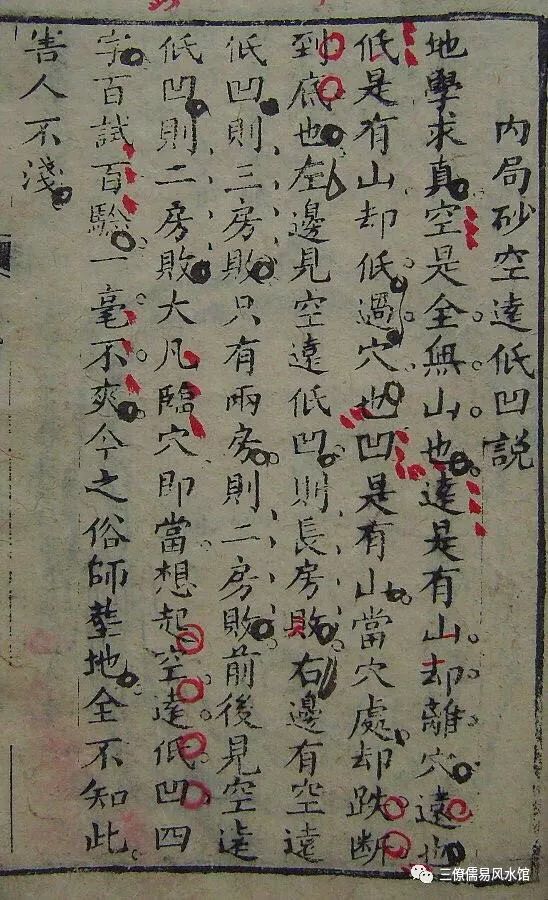 內局砂空遠低凹説
地學求真空是全無山也遠是有山却離穴遠也
低是有山却低過穴也凹是有山當穴處却跌断
到底也左邊見空遠低凹則長房敗右邊有空遠
低凹則三房敗只有兩房則二房敗前後見空遠
低凹則二房敗大凡臨穴即當想起空遠低凹四
字百試百驗一毫不爽今之俗師塟地全不知此
害人不淺
三僚儒易风水馆